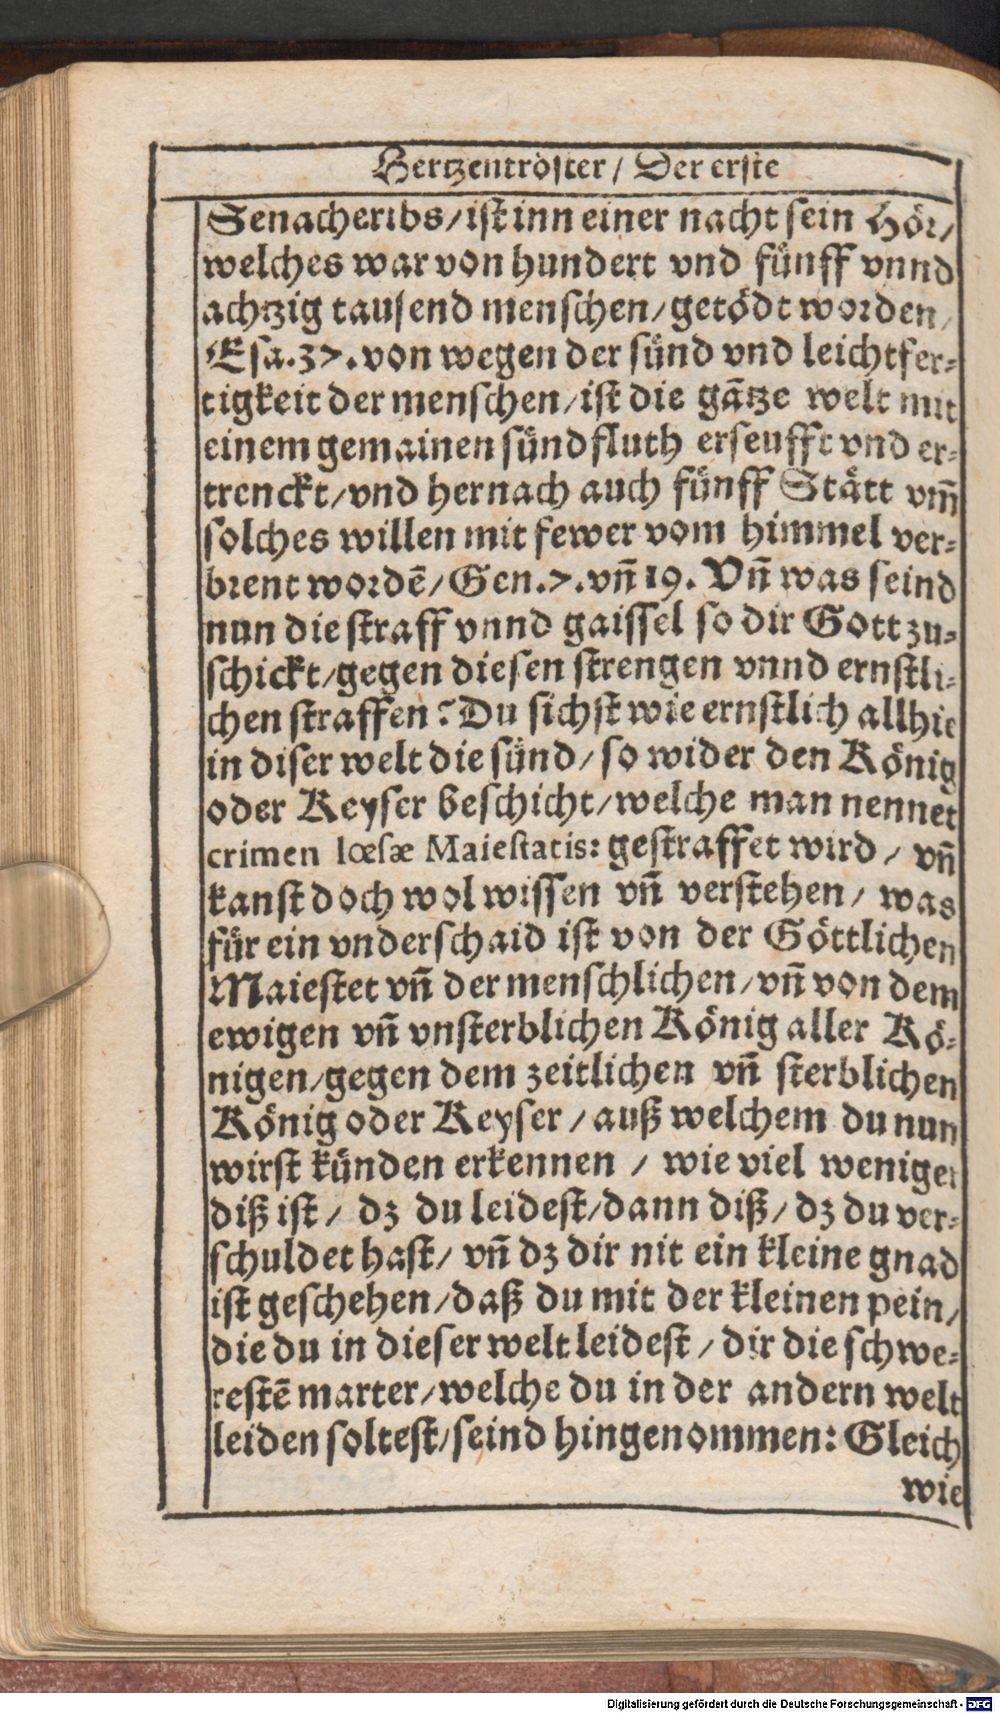 Hertzentröster / Der erste
Senacheribs/ ist inn einer nacht sein Hör/
welches war von hundert vnd fünff vnnd
achtzig tausend menschen/ getödt worden/
Esa.37. von wegen der sünd vnd leichtfer-
tigkeit der menschen/ ist die gātze welt mit
einem gemainen sündfluth erseufft vnd er-
trenckt/ vnd hernach auch fünff Stätt vm̄
solches willen mit fewer vom himmel ver-
brent wordē/ Gen.7. vn̄ 19. Vn̄ was seind
nun die straff vnnd gaissel so dir Gott zu-
schickt/ gegen diesen strengen vnnd ernstli-
chen straffen? Du sichst wie ernstlich allhie
in diser welt die sünd/ so wider den König
oder Keyser beschicht/ welche man nennet
crimen lœsæ Maiestatis: gestraffet wird / vn̄
kanst doch wol wissen vn̄ verstehen/ was
für ein vnderschaid ist von der Göttlichen
Maiestet vn̄ der menschlichen/ vn̄ von dem
ewigen vn̄ vnsterblichen König aller Kö-
nigen/ gegen dem zeitlichen vn̄ sterblichen
König oder Keyser / auß welchem du nun
wirst künden erkennen / wie viel weniger
diß ist / dz du leidest/ dann diß/ dz du ver-
schuldet hast/ vn̄ dz dir nit ein kleine gnad
ist geschehen/ daß du mit der kleinen pein/
die du in dieser welt leidest / dir die schwe-
restē marter/ welche du in der andern welt
leiden soltest/ seind hingenommen: Gleich
wie
Digitalisierung gefördert durch die Deutsche Forschungsgemeinschaft - DFG